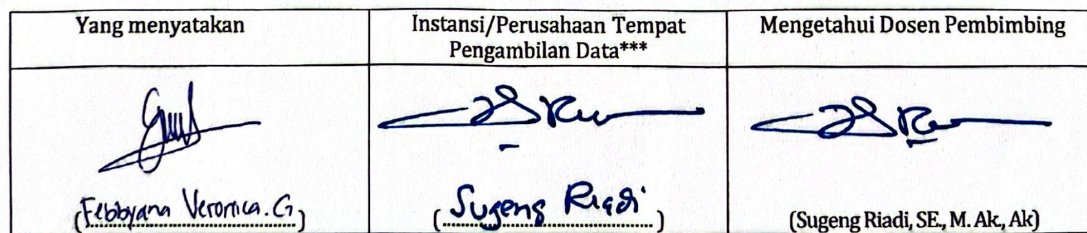 Yang menyatakan
Instansi/Perusahaan Tempat
Pengambilan Data***
Mengetahui Dosen Pembimbing
(Febbyana Veronica.G.)
(Sugeng Riadi)
(Sugeng Riadi, SE., M. Ak, Ak)